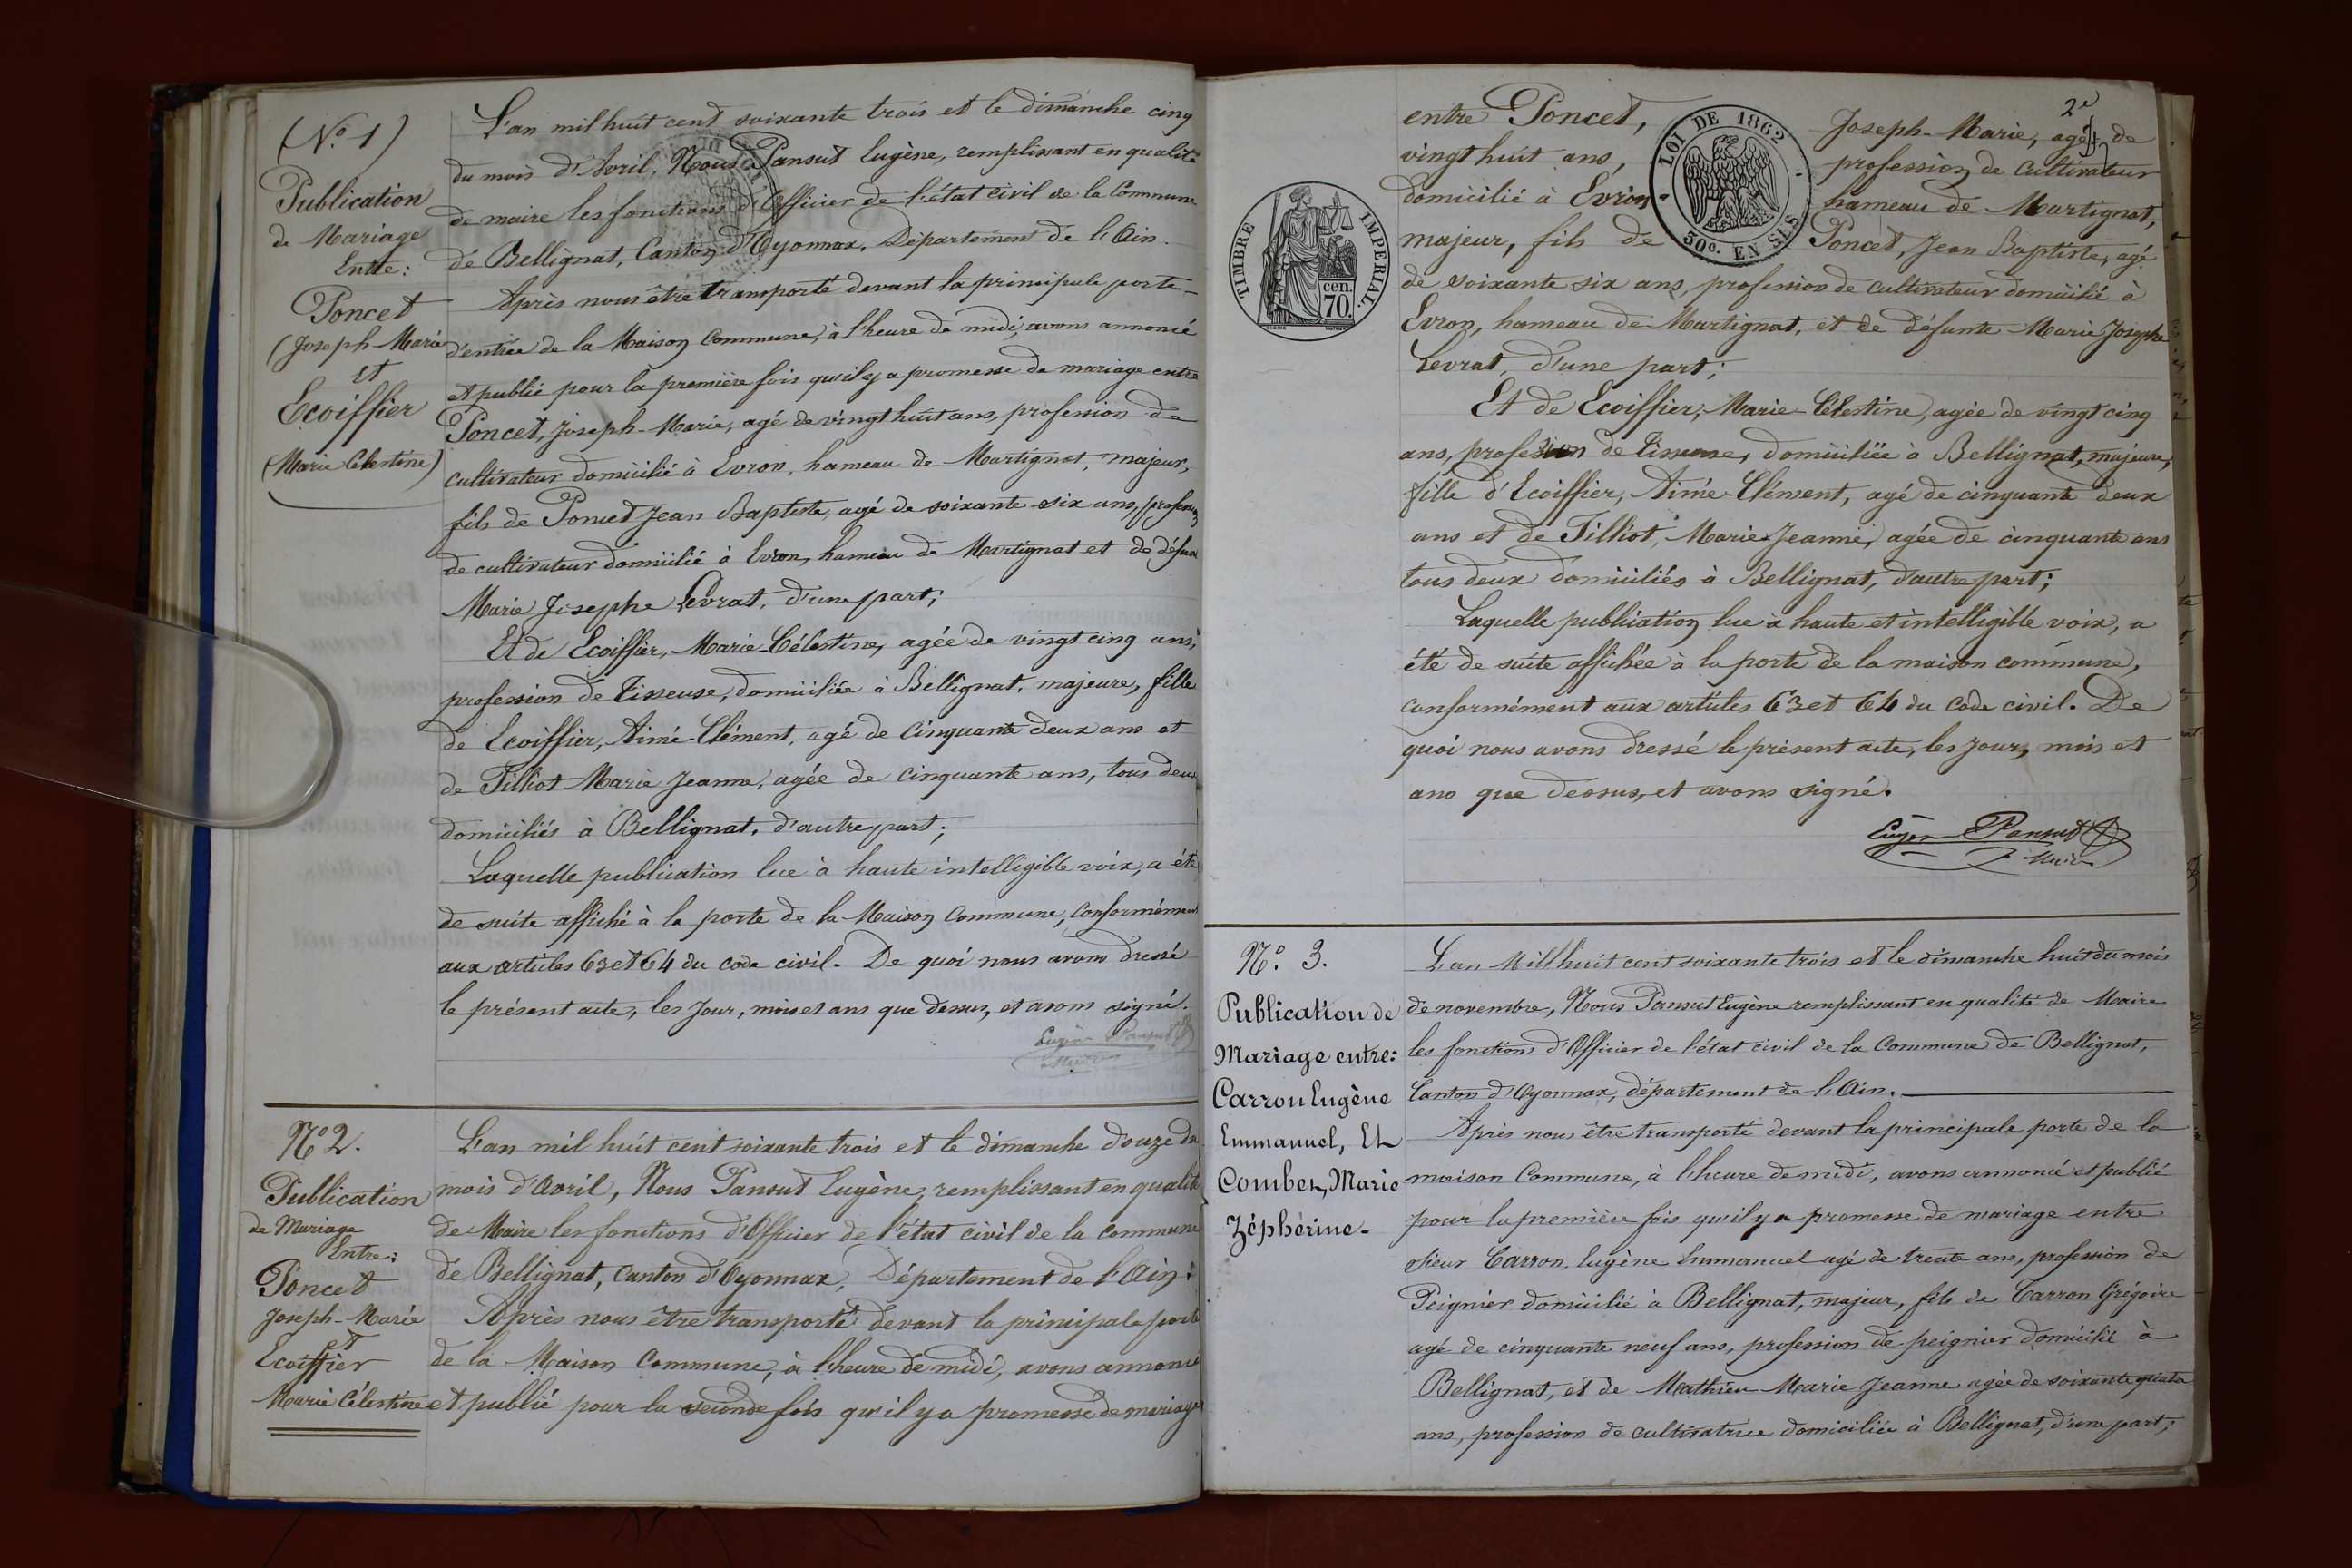 (N.º 1)
Publication
de Mariage
Entre:
Poncet
(Joseph-Marie
et
Ecoiffier
(Marie Célestine)
L'an mil huit cent soixante trois et le dimanche cinq
du mois d'Avril, Nous Pansut Eugène, remplissant en qualité
de maire les fonctions d'Officier de l'état civil de la Commune
de Bellignat, Canton d'Oyonnax, Département de l'Ain.
Après nous être transporté devant la principale porte
d'entrée de la Maison Commune, à l'heure de midi, avons annoncé
et publié pour la première fois qu'il y a promesse de mariage entre
Poncet, Joseph-Marie, agé de vingt huit ans, profession de
cultivateur domicilié à Evron, hameau de Martignat, majeur,
fils de Poncet Jean Baptiste, agé de soixante-six ans, profession
de cultivateur domicilié à Evron, hameau de Martignat et de défunte
Marie Josephe Levrat, d'une part;
Et de Ecoiffier, Marie-Célestine, agée de vingt cinq ans,
profession de Tisseuse, domiciliée à Bellignat, majeure, fille
de Ecoiffier, Aimé-Clément, agé de cinquante deux ans et
de Tilliot Marie Jeanne, agée de cinquante ans, tous deux
domiciliés à Bellignat, d'autre part;
Laquelle publication lue à haute intelligible voix, a été
de suite affiché à la porte de la Maison Commune, conformément
aux articles 63 et 64 du code civil. De quoi nous avons dressé
le présent acte, les Jour, mois et ans que dessus, et avons signé.
Eugène Pansut
Maire
Nº 2.
Publication
de Mariage
Entre:
Poncet
Joseph-Marie
et
Ecoiffier
Marie Célestine
L'an mil huit cent soixante trois et le dimanche douze du
mois d'Avril, Nous Pansut Eugène, remplissant en qualité
de Maire les fonctions d'Officier de l'état civil de la commune
de Bellignat, canton d'Oyonnax, Département de l'Ain:
Après nous être transporté devant la principale porte
de la Maison Commune, à l'heure de midi, avons annoncé
et publié pour la seconde fois qu'il y a promesse de mariage
2e
TIMBRE IMPERIAL.
cen.
70.
LOI DE 1862
50c. EN SUS
entre Poncet, Joseph-Marie, agé de
vingt huit ans, profession de Cultivateur
domicilié à Evron hameau de Martignat,
majeur, fils de Poncet, Jean Baptiste, agé
de soixante six ans, profession de cultivateur domicilié à
Evron, hameau de Martignat, et de défunte Marie Josephe
Levrat, d'une part;
Et de Ecoiffier, Marie-Célestine, agée de vingt cinq
ans, profession de Tisseuse, domiciliée à Bellignat, majeure,
fille d'Ecoiffier, Aimé-Clément, agé de cinquante deux
ans et de Tilliot, Marie Jeanne, agée de cinquante ans
tous deux domiciliés à Bellignat, d'autre part;
Laquelle publication lue à haute et intelligible voix, a
été de suite affichée à la porte de la maison commune,
conformément aux articles 63 et 64 du code civil. De
quoi nous avons dressé le présent acte, les jour, mois et
ans que dessus, et avons signé.
Eugène Pansut
Maire
Nº. 3.
Publication de
Mariage entre:
Carron Eugène
Emmanuel, Et
Combet, Marie
Zéphérine.
L'an Mill huit cent soixante trois et le dimanche huit du mois
de novembre, Nous Pansut Eugène remplissant en qualité de Maire
les fonctions d'Officier de l'état civil de la Commune de Bellignat,
Canton d'Oyonnax, département de l'Ain.
Après nous être transporté devant la principale porte de la
maison Commune, à l'heure de midi, avons annoncé et publié
pour la première fois qu'il y a promesse de mariage entre
sieur Carron, Eugène Emmanuel agé de trente ans, profession de
Peignier domicilié à Bellignat, majeur, fils de Carron Grégoire
agé de cinquante neuf ans, profession de peignier domicilié à
Bellignat, et de Mathieu Marie Jeanne agée de soixante quatre
ans, profession de cultivatrice domiciliée à Bellignat, d'une part;